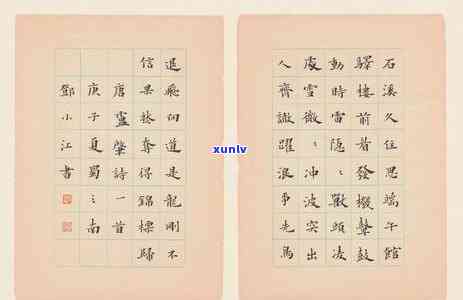 石溪久住思端午館
驛樓前看發機鼙鼓
動時雷隱〻獸頭凌
處雪微〻沖波突出
人齊譀躍浪爭先鳥
退飛向道是龍剛不
信果然奪得錦標歸
唐盧肇詩一首
庚子夏蜀之南
鄧小江書
xunlv